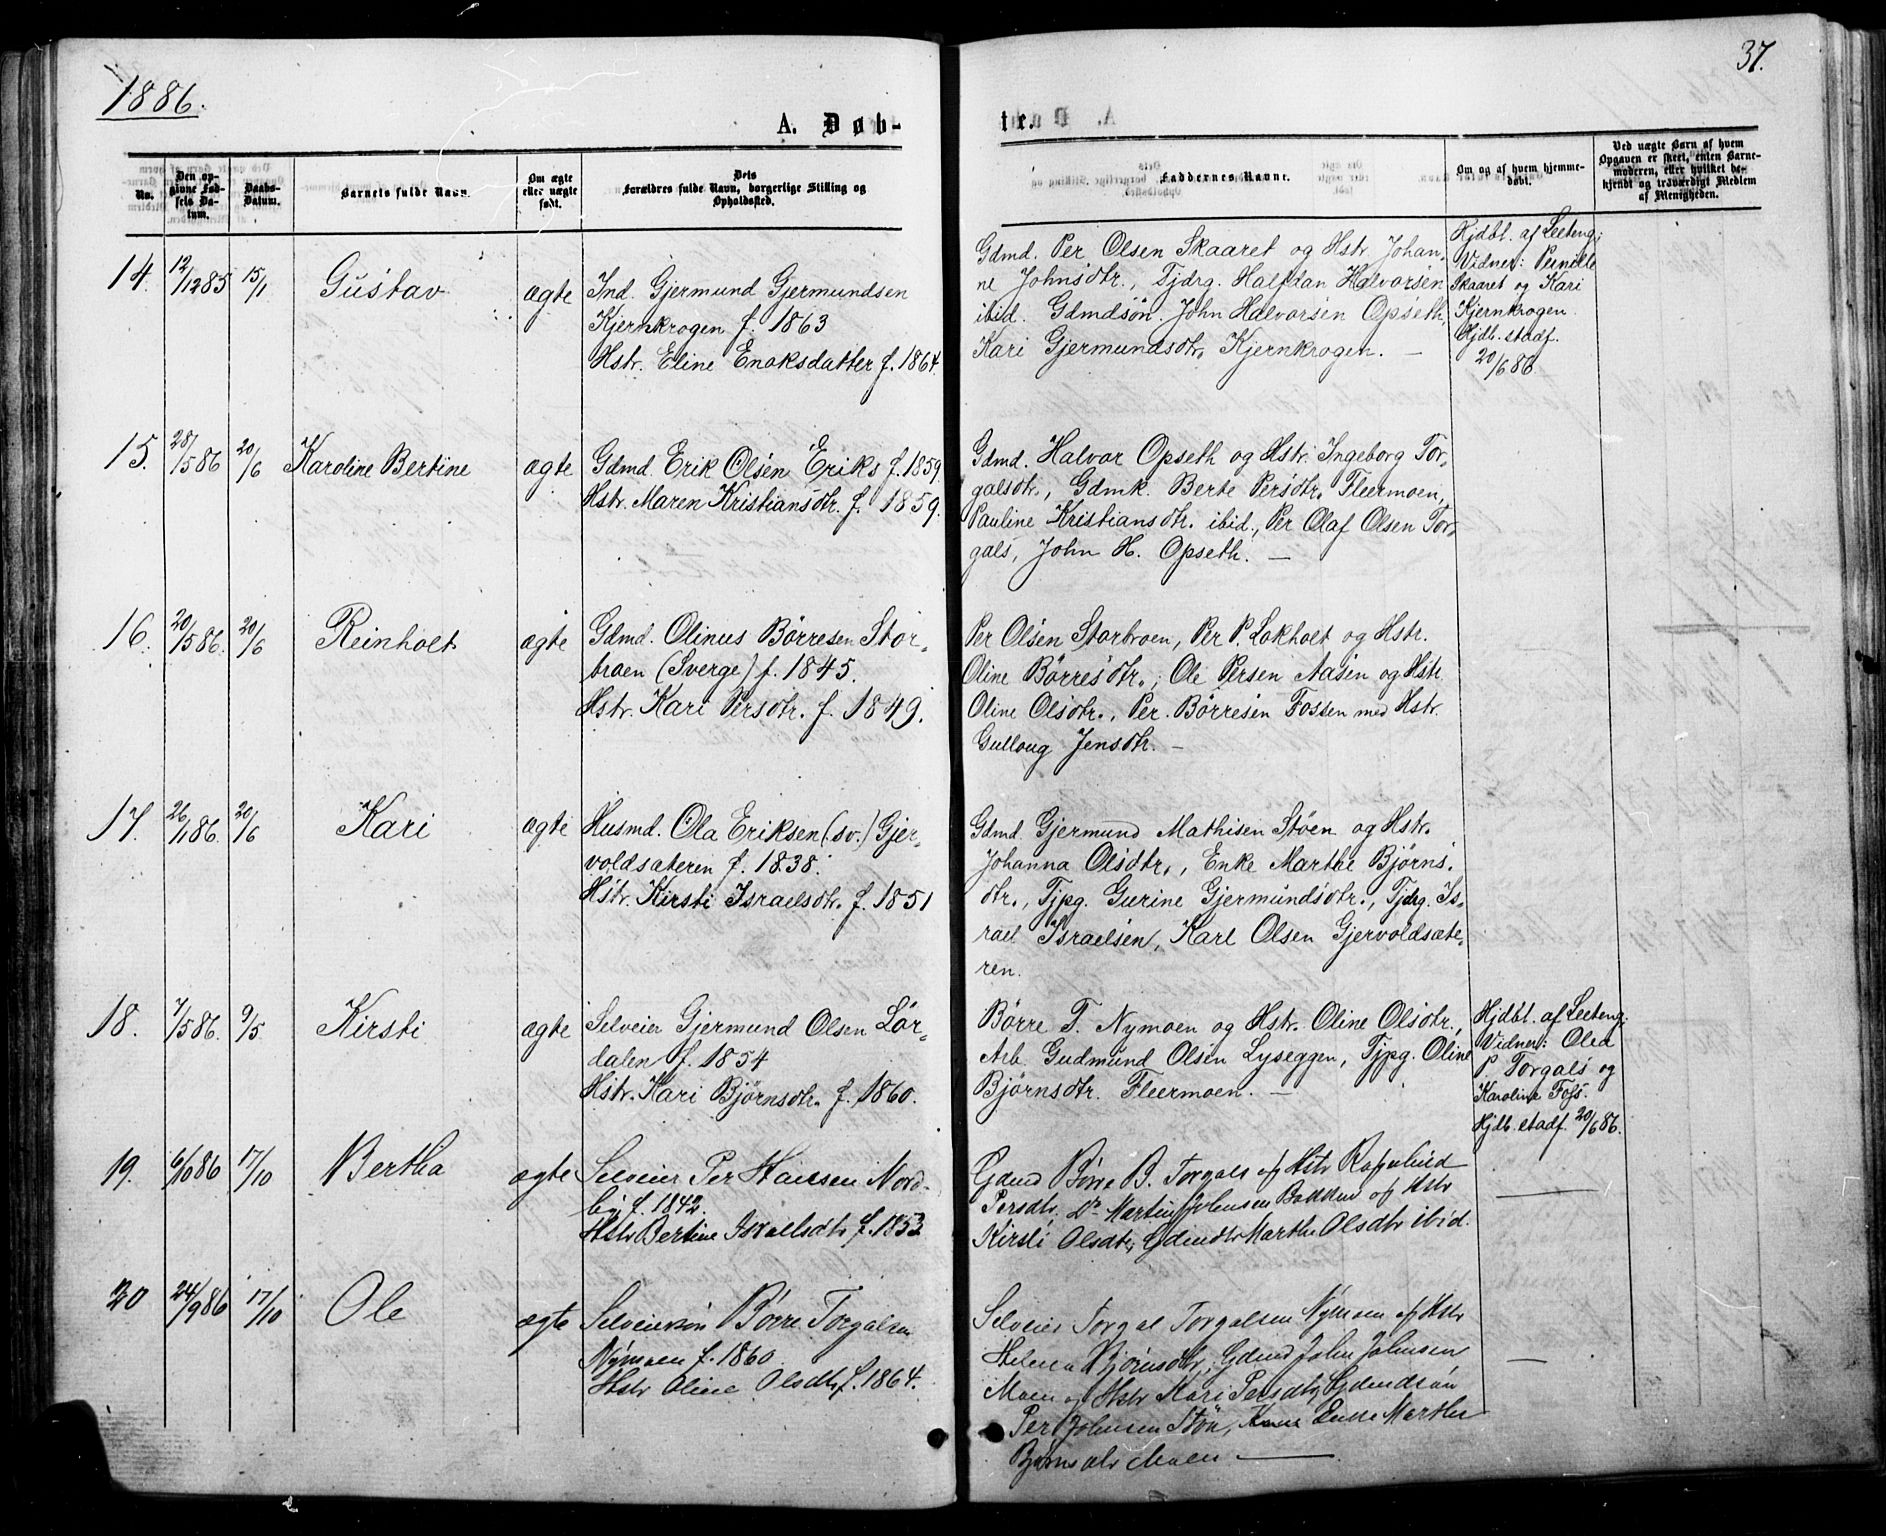 1886.
37.
A. Døb-
tr.
No.
Den op-
givne Fød-
sels Da-
tum.
Daabs-
Datum.
Barnets fulde Navn.
Om ægte
eller uægte
født.
Dets
Forældres fulde Navn, borgerlige Stilling og
Opholdssted.
Faddernes Navne.
Om og af hvem hjemme-
døbt.
Ved uægte Børn af hvem
Opgaven er skeet, enten Barne-
moderen, eller hvilket be-
kjendt og troværdigt Medlem
af Menigheden.
14. 12/1285 15/1 Gustav ægte
Ind. Gjermund Gjermundsen
Kjernkrogen f. 1863
Hstr. Eline Enoksdatter f. 1864.
Gdmd. Per Olsen Skaaret og Hstr. Johan-
ne Johnsdtr., Tjdrg. Halfdan Halvorsen
ibid. Gdmdsön. John Halvorsen Opseth,
Kari Gjermundsdtr. Kjernkrogen. —
Hjdbt. af Leteng:
Vidner: Pernille
Skaaret og Kari
Kjernkrogen.
Hjdb. stadf.
20/686
15. 28/586 20/6 Karoline Bertine ægte
Gdmd. Erik Olsen Eriks f. 1859.
Hstr. Maren Kristiansdtr. f. 1859.
Gdmd. Halvor Opseth og Hstr. Ingeborg Tor-
galsdtr., Gdmk. Berte Persdtr. Fleermoen,
Pauline Kristiansdtr. ibid., Per Olaf Olsen Tor-
gals, John H. Opseth. —
16. 20/586. 20/6 Reinholt ægte
Gdmd. Olinus Börresen Stor-
broen (Sverge) f. 1845.
Hstr. Kari Persdtr. f. 1849.
Per Olsen Storbroen, Per P. Lokholt og Hstr.
Oline Börresdtr., Ole Persen Aasen og Hstr.
Oline Olsdtr., Per Börresen Fossen med Hstr.
Gulloug Jensdtr. —
17. 26/186. 20/6 Kari ægte
Husmd. Ola Eriksen (sv.) Gjer-
voldsæteren f. 1838.
Hstr. Kirsti Israelsdtr. f. 1851
Gdmd. Gjermund Mathisen Stöen og Hstr.
Johanna Olsdtr., Enke Marthe Björns-
dtr., Tjpg. Gurine Gjermundsdtr., Tjdrg. Is-
rael Israelsen, Karl Olsen Gjervoldsæte-
ren.
18. 7/586. 9/5 Kirsti ægte
Selveier Gjermund Olsen Lör-
dalen f. 1854
Hstr. Kari Björnsdtr. f. 1860.
Börre T. Nymoen og Hstr. Oline Olsdtr.,
Arb. Gudmund Olsen Lyseggen, Tjpg. Oline
Björnsdtr. Fleermoen. —
Hjdbt. af Leteng:
Vidner: Olea
P. Torgals og
Karoline Foss.
Hjdb. stadf. 20/686.
19. 6/1086 17/10 Bertha ægte
Selveier Per Hansen Nord-
bÿ f. 1842.
Hstr Bertine Israelsdtr f. 1853
Gdmd Börre B. Torgals og Hstr
Persdtr. Do Martin Johnsen og Hstr
Kirsti Olsdtr, Gdmdtr Marthe Olsdtr ibid.
20 24/986 17/10 Ole ægte
Selveiersön Börre Torgalsen
Nÿmoen f. 1860
Hstr Oline Olsdtr f. 1864.
Selveier Torgal Torgalsen Nÿmoen og Hstr
Helena Björnsdtr, Gdmd John Johnsen
Moen og Hstr Kari Persdtr, Gdmdsön
Per Johnsen Stöa, Enke Marthe
Björnsdtr Moen —